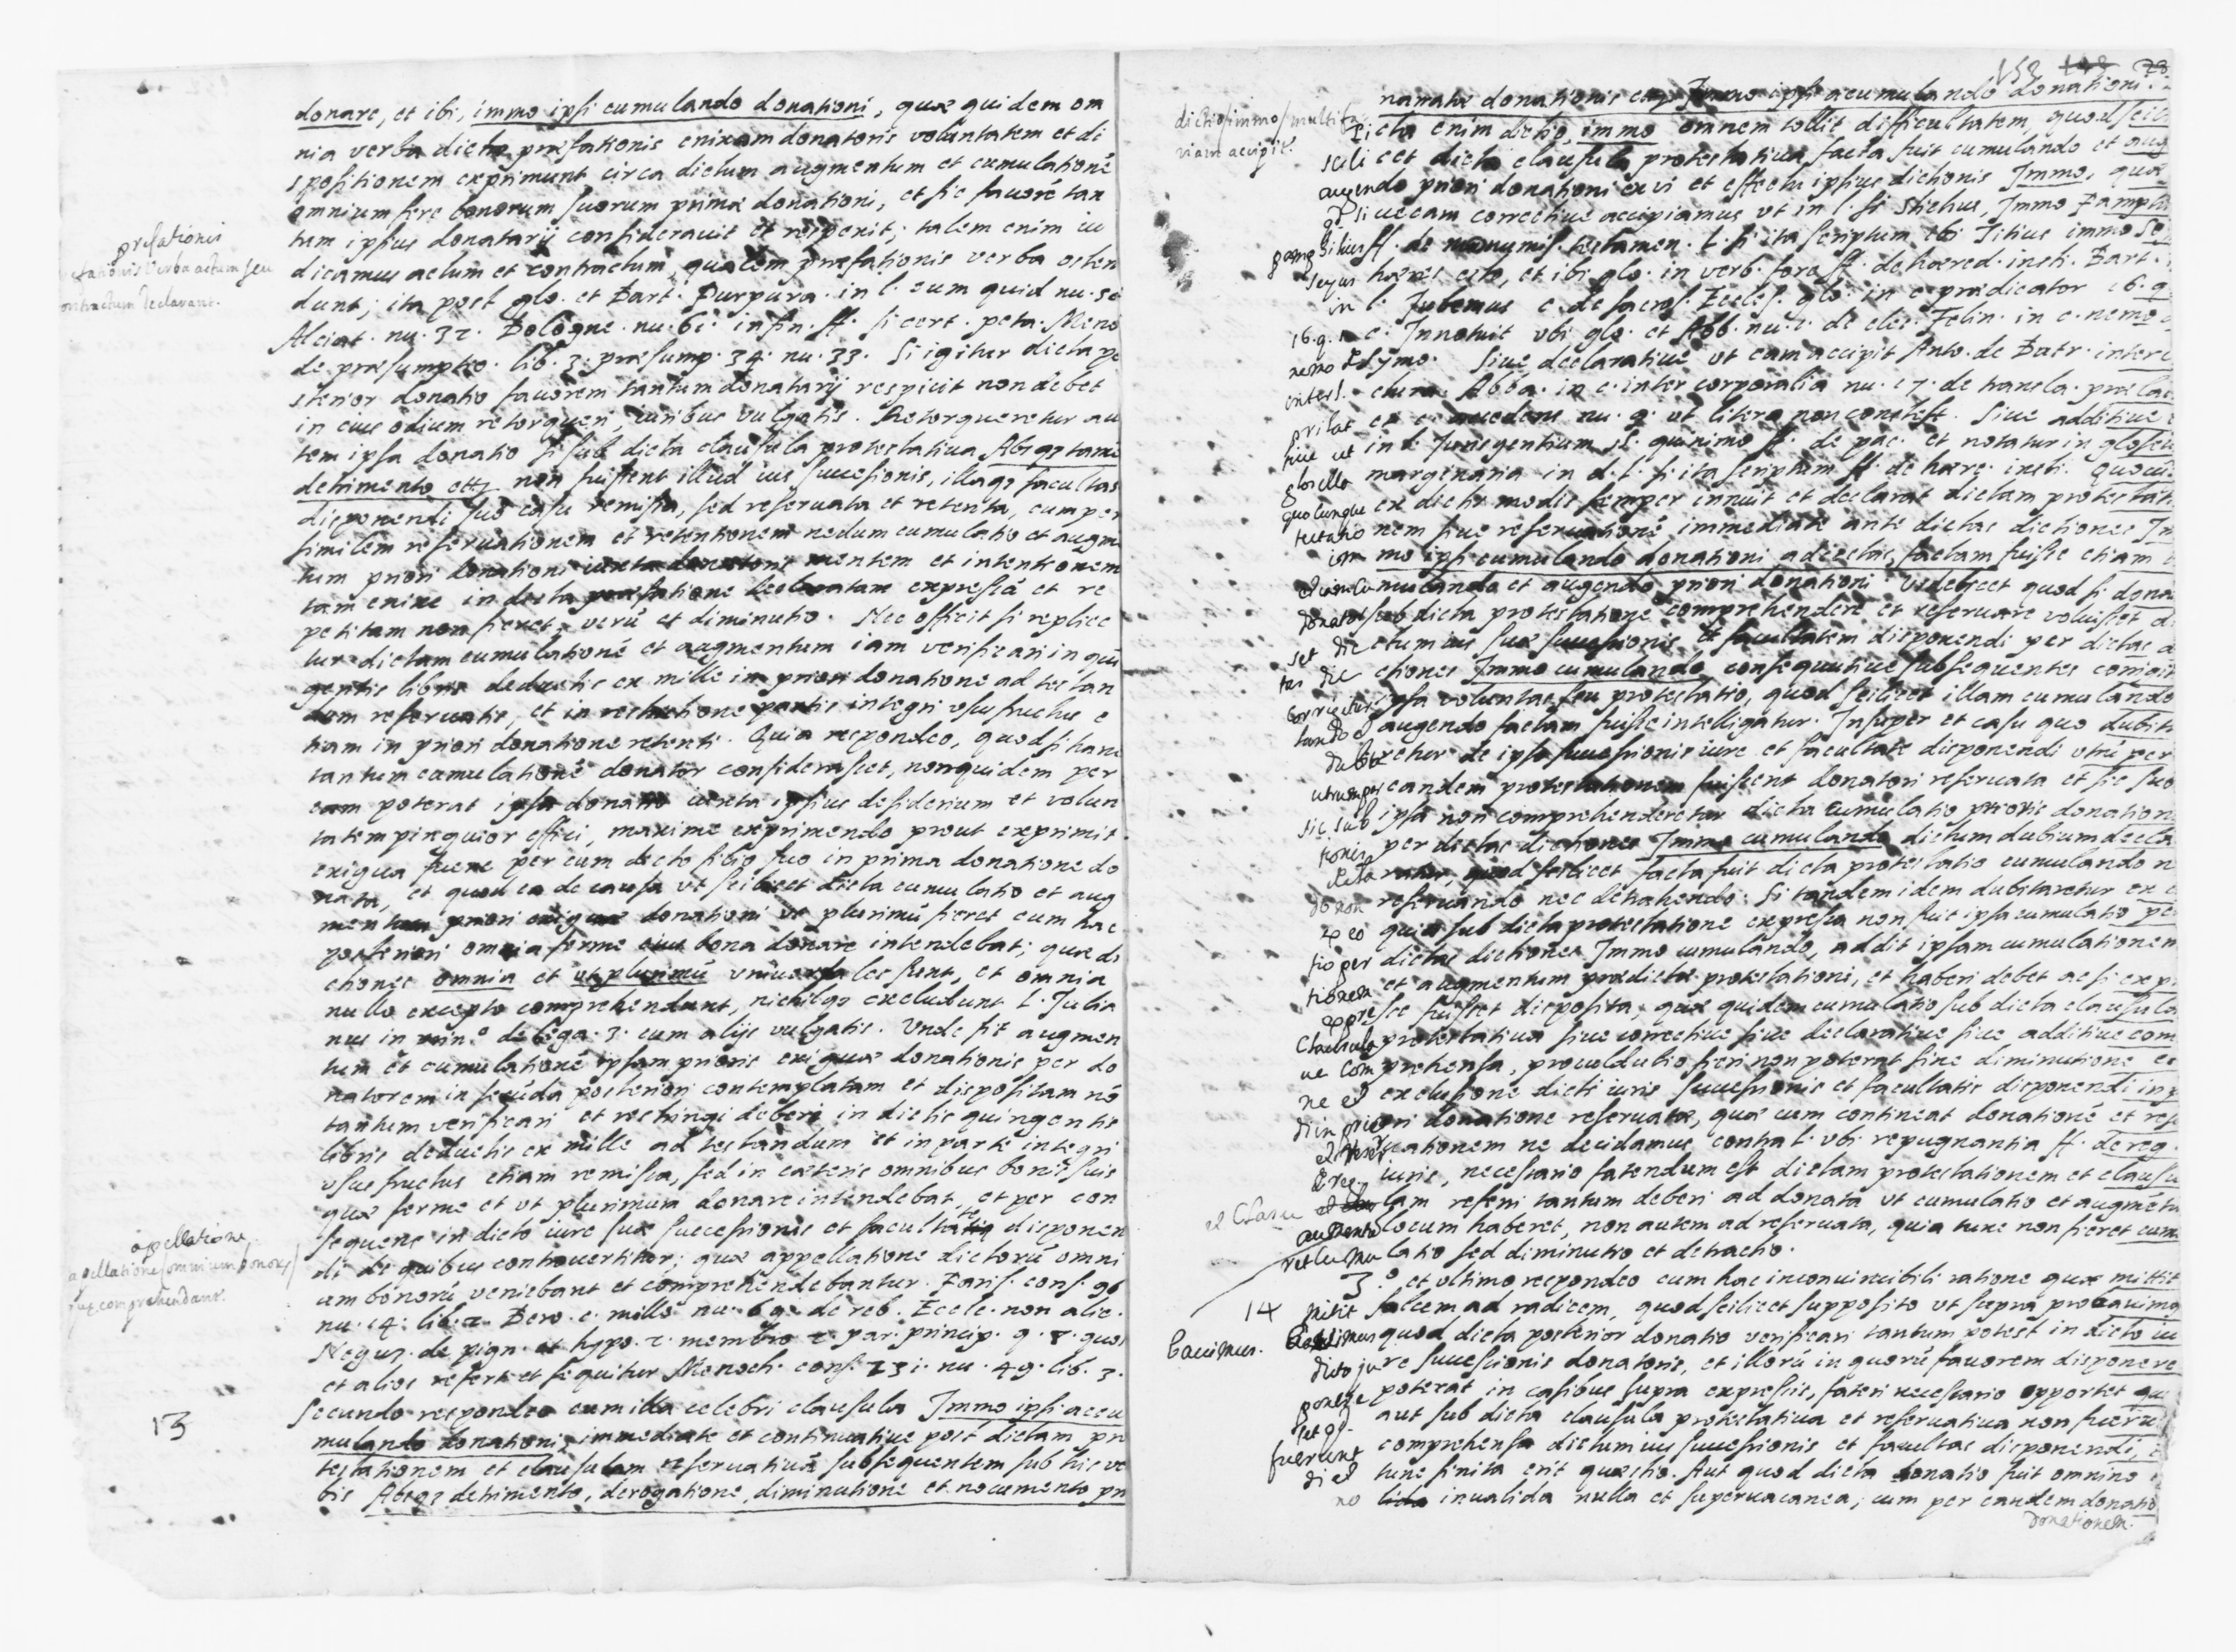 donare, et ibi, immo ipsi cumulando donationi, quæ quidem om
nia verba dictæ præfationis enixam donatoris voluntatem et di
spositionem exprimunt circa dictum augmentum et cumulationẽ
omnium fere bonorum suorum primæ donationi, et sic favorẽ tan
tum ipsius donatarij consideravit et respexit; talem enim iu
dicamus actum et contractum, qualem præfationis verba osten
dunt; ita post glo. et Bart. Purpura. in l. cum quid nu.
Alciat. nu. 32. Bologne. nu. 61. in fin. ff. si cert. peta. Meno
de præsumptio. lib. 3. præsump. 34. nu. 33. Si igitur dicta po
sterior donatio favorem tantum donatarij respicit non debet
in eius odium retorqueri, iuribus vulgatis. Retorqueretur au
tem ipsa donatio si sub dicta clausula protestativa Absqz tamẽ
detrimento non fuissent illud ius successionis, illaqz facultas
disponendi suo casu remissa, sed reservata et retenta, cum per
similem reservationem et retentionem nedum cumulatio et augmẽ
tum priori donationi iuxta donatoris mentem et intentionem
tam enixe in dicta præfatione declaratam expressã et re
petitam non fieret, verũ et diminutio. Nec officit si replice
tur dictam cumulationẽ et augmentum iam verificari in quin
gentis libris deductis ex mille in priori donatione ad testan
dum reservatis, et in restrictione partis integri usufructus e
tiam in priori donatione retenti. Quia respondeo, quod si hanc
tantum cumulationẽ donator considerasset, non quidem per
eam poterat ipsa donatio iuxta ipsius desiderium et volun
tatem pinguior effici, maxime exprimendo prout exprimit
exigua fuere per eum dicto filio suo in prima donatione do
nata, et quod ea de causa ut scilicet dicta cumulatio et aug
mentum priori exiguæ donationi ut plurimũ fieret cum hac
posteriori omnia ferme eius bona donare intendebat; quæ di
ctiones omnia et ut plurimũ universales sunt, et omnia
nullo excepto comprehendunt, nichilqz excludunt l. Julia
nus in prin.º de lega. 3. cum alijs vulgatis. Unde fit augmen
tum et cumulationẽ ipsam prioris exiguæ donationis per do
natorem in secũda posteriori contemplatam et dispositam nõ
tantum verificari et restringi deberi in dictis quingentis
libris deductis ex mille ad testandum et in parte integri
usufructus etiam remissa, sed in cæteris omnibus bonis suis
quæ ferme et ut plurimum donare intendebat, et per con
sequens in dicto iure suæ successionis et facultatis disponen
di de quibus controvertitur; quæ appellatione dictorũ omni
um bonorũ veniebant et comprehendebantur. Paris. cons. 96
nu. 14. lib. 2. Bero. c. nulli nu. 69. de reb. Eccle. non alie.
Neguz. de pign. et hypo. 2. membro 2. par. princip. q. 8. quos
et alios refert et sequitur Menoch. cons. 231. nu. 49. lib. 3.
Secundo respondeo cum illa celebri clausula Immo ipsi accu
mulando donationi, immediate et continuative post dictam pro
testationem et clausulam reservativã subsequentem sub his ver
bis Absqz detrimento, derogatione, diminutione et nocumento pri
præfationis
verba actum seu
contractum declarant.
appellatione
appellatione omnium bonorum
quæ comprehendant.
13
153
narratæ donationis immo ipsi acumulando donationi.
Dicta enim dictio, immo omnem tollit difficultatem, quod scili
scili cet dicta clausula protestativa facta fuit cumulando et aug
augendo priori donationi ex vi et effectu ipsius dictionis Immo, quã
sive eam corrective accipiamus ut in l. si Stichus, Immo Pamphi
ff. de manumis. testamen. l. si ita scriptum ibi Titius immo Se
Seyus hæres esto, et ibi glo. in verb. fore ff. de hæred. insti. Bart.
in l. Jubemus c. de sacros. Eccles. glo. in c. prædicator 16. q.
16. q. 1. c. Innotuit ubi glo. et Abb. nu. 2. de elec. Felin. in c. nemo
nemo de symo. Sive declarative ut eam accipit Anto. de Butr. inter c
Abba. in c. inter corporalia nu. 17. de transla. prælat
prilat et c. accedens nu. 9. ut lite non contest. Sive additive
sive ut in l. Jurisgentium §. quinimo ff. de pac. et notatur in glosell
glosella marginaria in d. l. si ita scriptum ff. de hære. insti. quocun
quo cunque ex dictis modis semper innuit et declarat dictam protestati
nem sive reservationẽ immediate ante dictas dictiones Im
mo ipsi cumulando donationi adiectis, factam fuisse etiam
cumulando et augendo priori donationi. Videlicet quod si dona
donatos sub dicta protestatione comprehendere et reservare voluisset di
dictum ius suæ successionis et facultatem disponendi per dictas di
tas dic ctiones Immo cumulando consequutive subsequentes corrigit
corrigitur ipsa voluntas seu protestatio, quod scilicet illam cumulando
tando et augendo factam fuisse intelligatur. Insuper et casu quo dubit
dubitaretur de ipso successionis iure et facultate disponendi utrũ per
utrum per eandem protestationem fuissent donatori reservata et sic sub
sic sub ipsa non comprehenderetur dicta cumulatio prioris donation
tionis per dictas dictiones Immo cumulando dictum dubium decla
ratur, quod scilicet facta fuit dicta protestatio cumulando n
reservando nec detrahendo. Si tandem idem dubitaretur ex e
ex eo quia sub dicta protestatione expressa non fuit ipsa cumulatio pe
tio per dictas dictiones Immo cumulando, addit ipsam cumulationem
tionem et augmentum prædictæ protestationi, et haberi debet ac si exp
expresse fuisset disposita, quæ quidem cumulatio sub dicta clausula
clausula protestativa sive corrective sive declarative sive additive com
ve comprehensa, proculdubio fieri non poterat sine diminutione et
ne et exclusione dicti iuris successionis et facultatis disponendi in p
di in priori donatione reservatæ, quæ cum contineat donationẽ et res
vationem ne decidamus contra l. ubi repugnantia ff. de reg.
iuris, necessario fatendum est dictam protestationem et clausu
et clausu lam referri tantum deberi ad donata ut cumulatio et augmẽtu
locum haberet, non autem ad reservata, quia tunc non fieret cum
ret cumu latio sed diminutio et detractio.
3.º et ultimo respondeo cum hac inconvincibili ratione quæ mittit
14 mitit falcem ad radicem, quod scilicet supposito ut supra probavimus
bavimus. quod dicta posterior donatio verificari tantum potest in dicto iu
dicto ju re successionis donatoris, et illorũ in quorũ favorem disponere
ponere poterat in casibus supra expressis, fateri necessario opportet qu
aut sub dicta clausula protestativa et reservativa non fuerũt
fuerunt comprehensa dictum ius successionis et facultas disponendi, e
di et tunc finita erit quæstio. Aut quod dicta donatio fuit omnino
no invalida nulla et supervacanea; cum per eandem donatio
donationem.
dictio immo multifa
viam accipit.